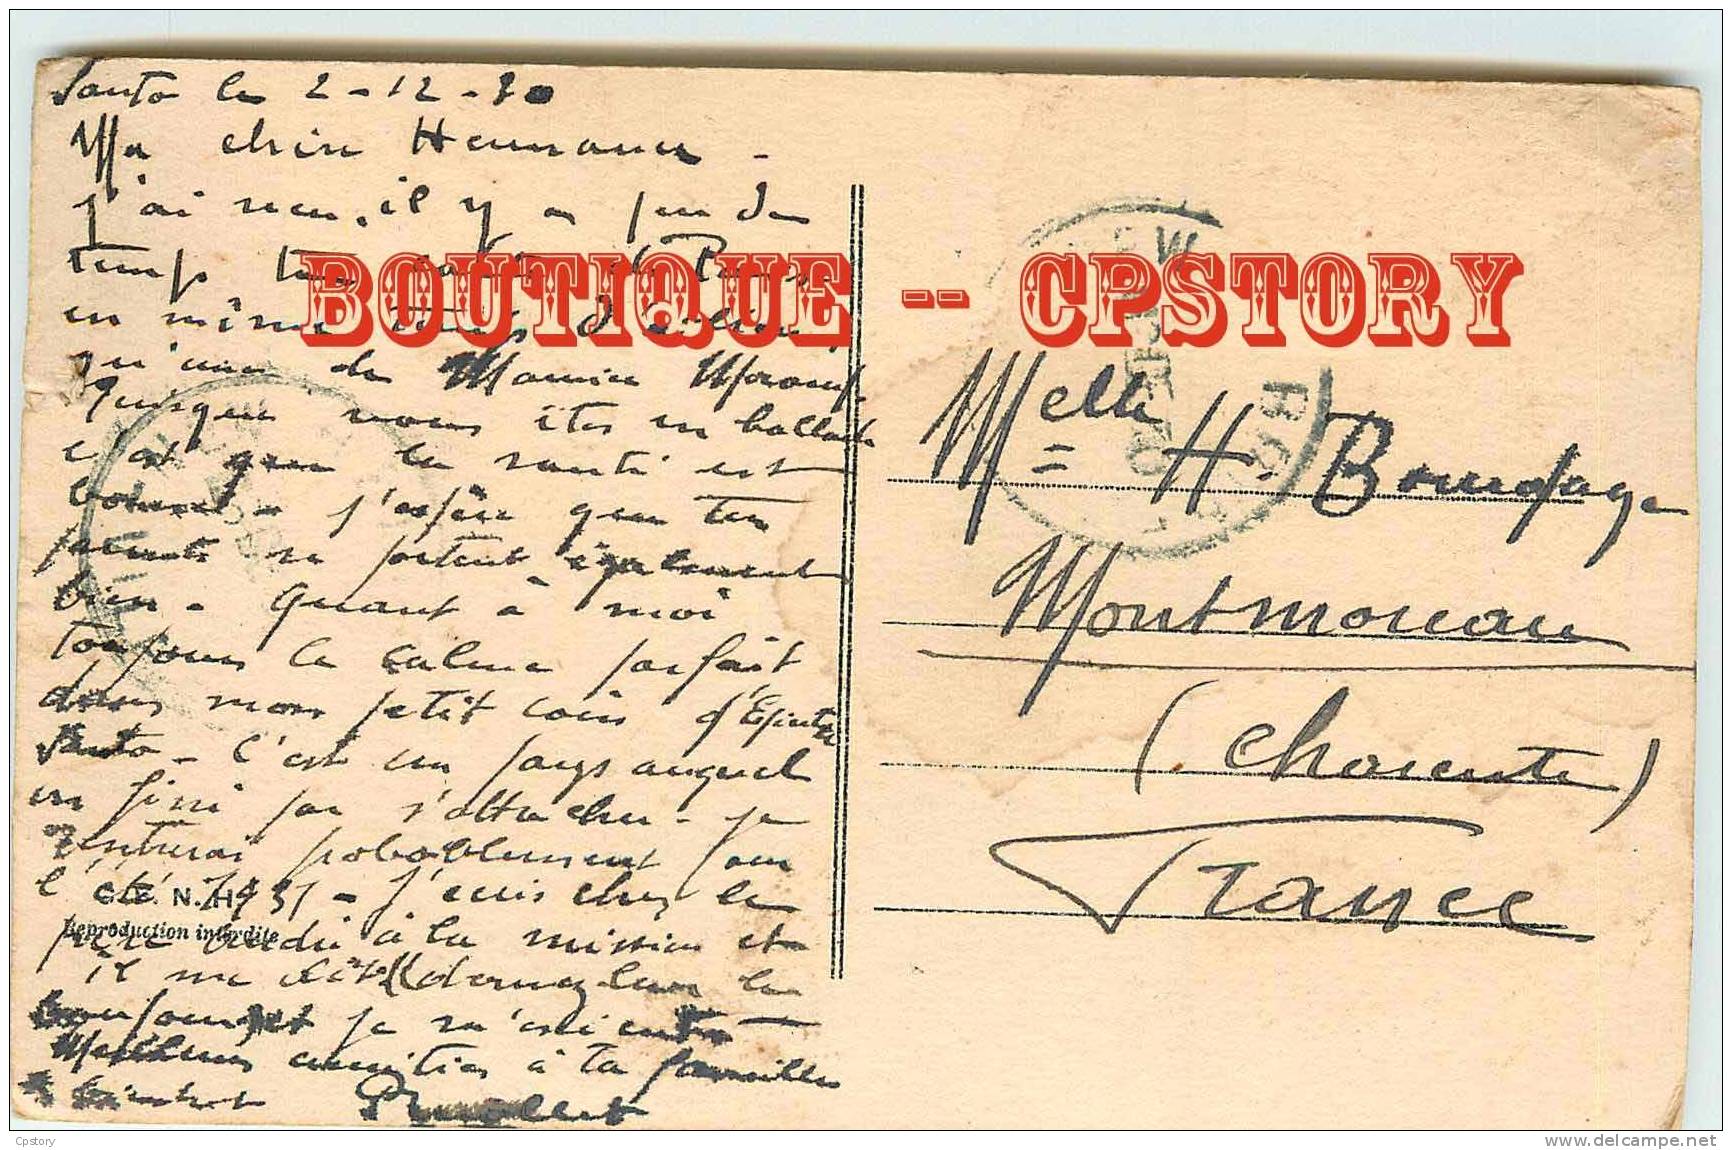 Santo le 2-12-30
Ma chère
j'ai reçu, il y a peu de
temps ta carte de Paris
en même temps d'ailleurs
qu'une de Maurice
Puisque vous êtes en ballade
c'est que la santé est
bonne - j'espère que tes
parents se portent également
bien - Quant à moi
toujours le calme parfait
dans mon petit coin d'Espiritu
Santo - C'est un pays auquel
on fini par s'attacher - je
rentrerai probablement pour
l'été 1931 - J'suis chez le
père à la mission et
il me dit "donnez leur le
bonjour" et je
Meilleures amitiés à ta famille
& bientôt
G. É. N. H.
Reproduction interdite
BOUTIQUE -- CPSTORY
Melle H. Bourdage
Montmoreau
(Charente)
France
Cpstory
www.delcampe.net